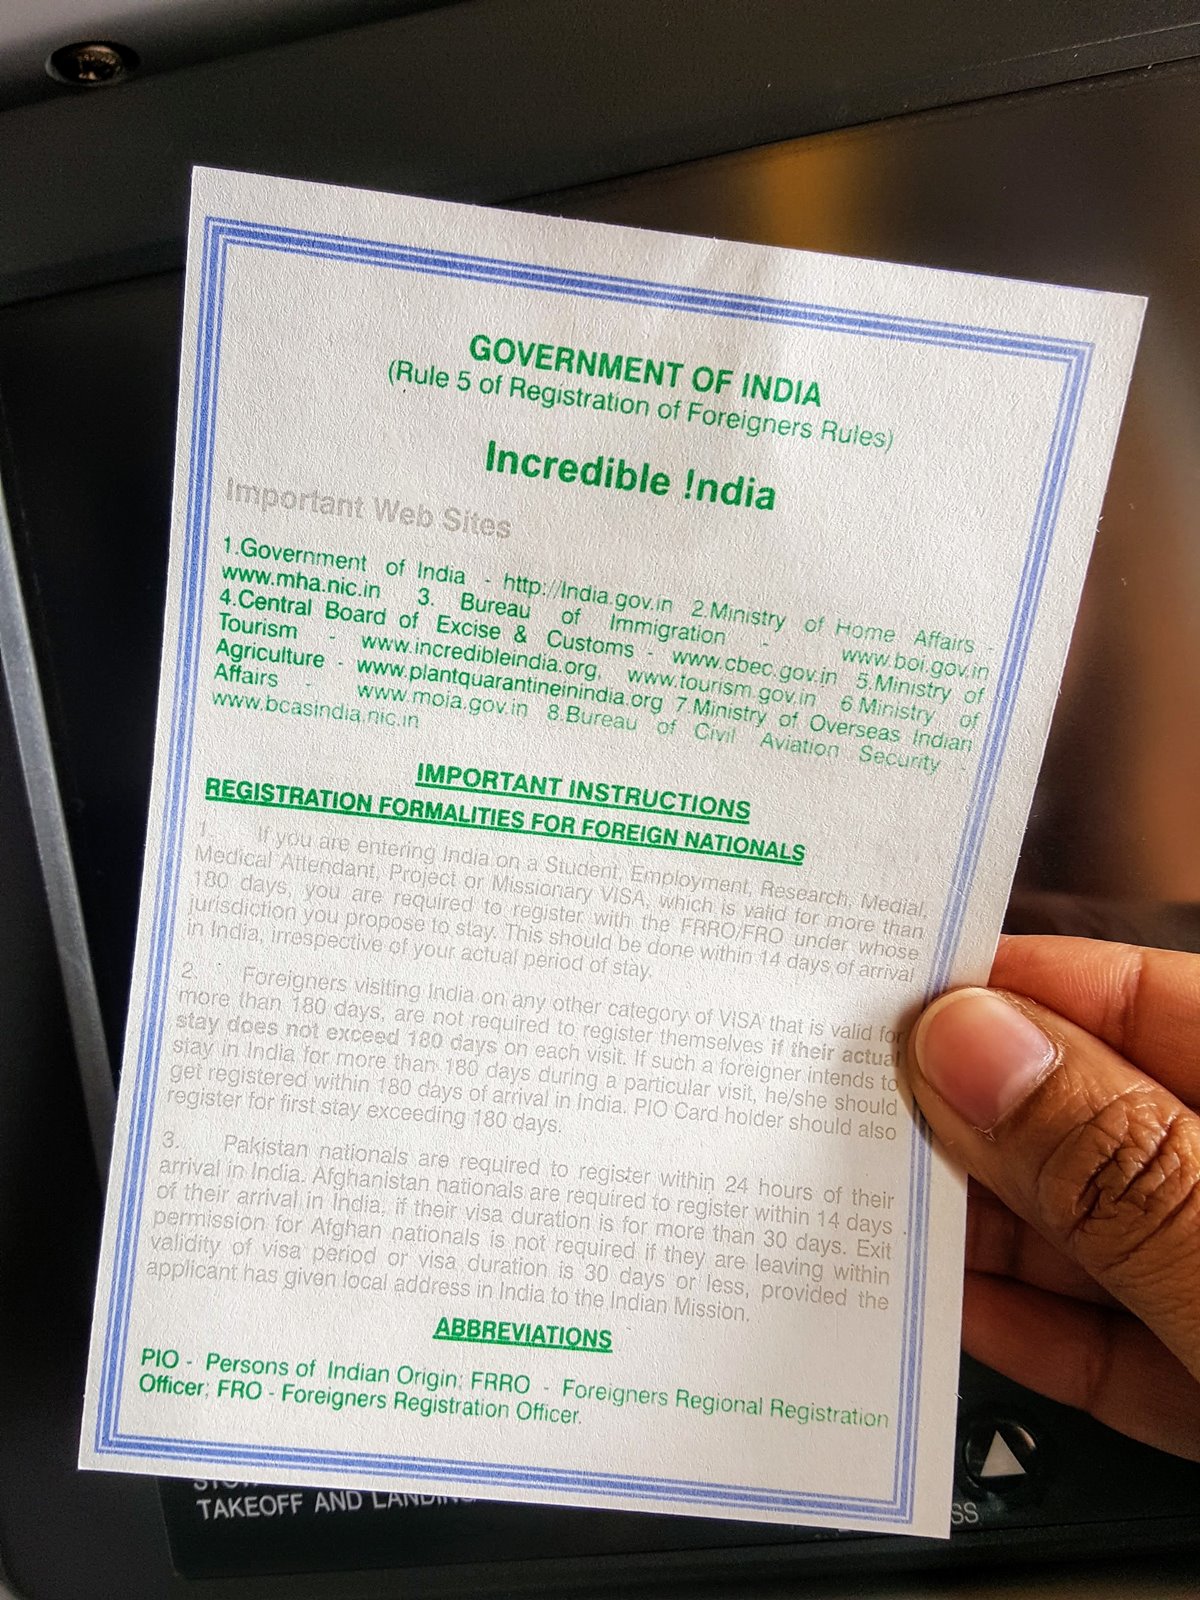 GOVERNMENT OF INDIA
(Rule 5 of Registration of Foreigners Rules)
Incredible !ndia
Important Web Sites
1.Government of India - http://India.gov.in 2.Ministry of Home Affairs -
www.mha.nic.in 3. Bureau of Immigration - www.boi.gov.in
4.Central Board of Excise & Customs - www.cbec.gov.in 5.Ministry of
Tourism - www.incredibleindia.org, www.tourism.gov.in 6.Ministry of
Agriculture - www.plantquarantineinindia.org 7.Ministry of Overseas Indian
Affairs - www.moia.gov.in 8.Bureau of Civil Aviation Security -
www.bcasindia.nic.in
IMPORTANT INSTRUCTIONS
REGISTRATION FORMALITIES FOR FOREIGN NATIONALS
1. If you are entering India on a Student, Employment, Research, Medial,
Medical Attendant, Project or Missionary VISA, which is valid for more than
180 days, you are required to register with the FRRO/FRO under whose
jurisdiction you propose to stay. This should be done within 14 days of arrival
in India, irrespective of your actual period of stay.
2. Foreigners visiting India on any other category of VISA that is valid for
more than 180 days, are not required to register themselves if their actual
stay does not exceed 180 days on each visit. If such a foreigner intends to
stay in India for more than 180 days during a particular visit, he/she should
get registered within 180 days of arrival in India. PIO Card holder should also
register for first stay exceeding 180 days.
3. Pakistan nationals are required to register within 24 hours of their
arrival in India. Afghanistan nationals are required to register within 14 days
of their arrival in India, if their visa duration is for more than 30 days. Exit
permission for Afghan nationals is not required if they are leaving within
validity of visa period or visa duration is 30 days or less, provided the
applicant has given local address in India to the Indian Mission.
ABBREVIATIONS
PIO - Persons of Indian Origin; FRRO - Foreigners Regional Registration
Officer; FRO - Foreigners Registration Officer.
TAKEOFF AND